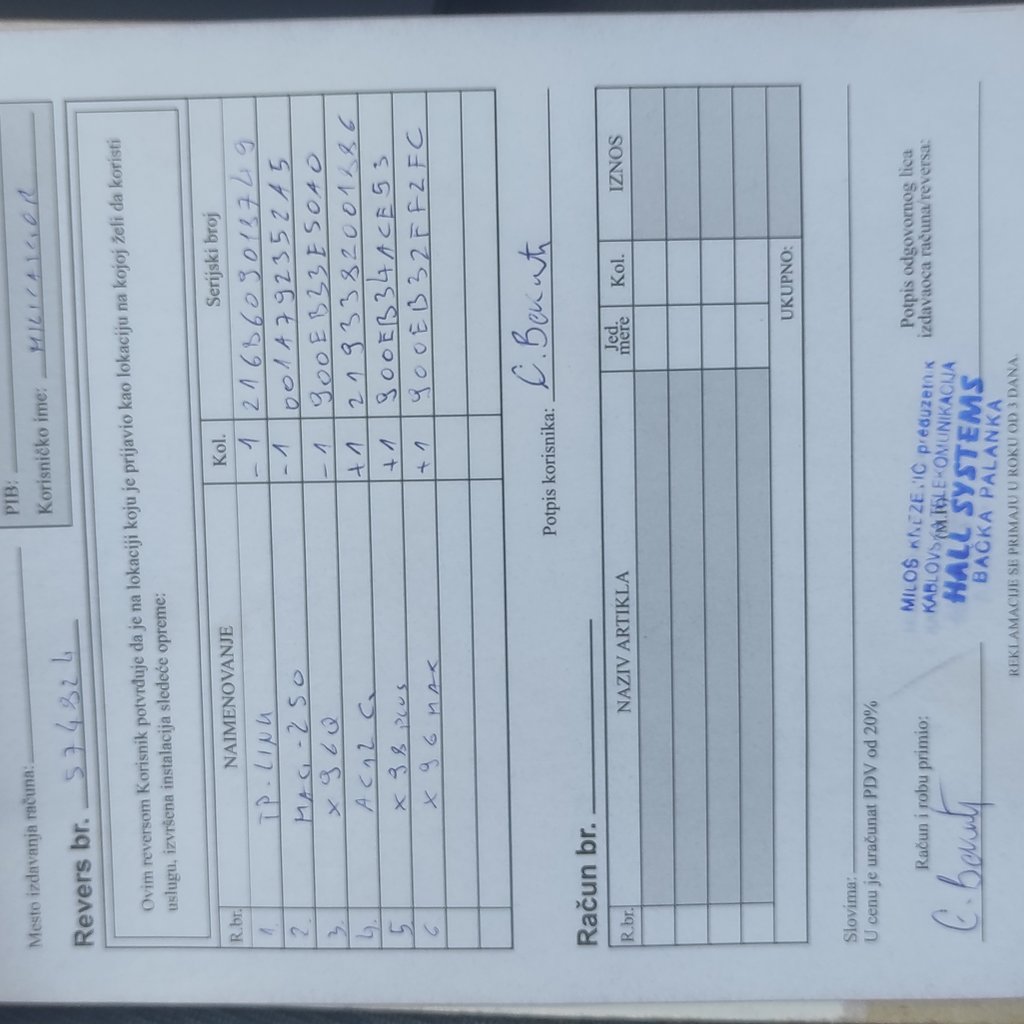 PIB:
Mesto izdavanja računa:
Korisničko ime:
Revers br. 574924
Ovim reversom Korisnik potvrđuje da je na lokaciji koju je prijavio kao lokaciju na kojoj želi da koristi
uslugu, izvršena instalacija sledeće opreme:
R.br. NAIMENOVANJE Kol. Serijski broj
1. TP-LINK -1
2. MAG-250 -1 001A792352A5
3. X96Q -1 900EB33E50A0
4. AC12G +1
5 X98 PLUS +1 900EB341CE53
6 X96 MAX +1 900EB32FF2FC
Potpis korisnika:
Račun br.
R.br. NAZIV ARTIKLA Jed. mere Kol. IZNOS
UKUPNO:
Slovima:
U cenu je uračunat PDV od 20%
Račun i robu primio:
Potpis odgovornog lica
izdavaoca računa/reversa:
(M.P.)
MILOŠ KNEŽEVIĆ preduzetnik
KABLOVSKA TELEKOMUNIKACIJA
HALL SYSTEMS
BAČKA PALANKA
REKLAMACIJE SE PRIMAJU U ROKU OD 3 DANA.